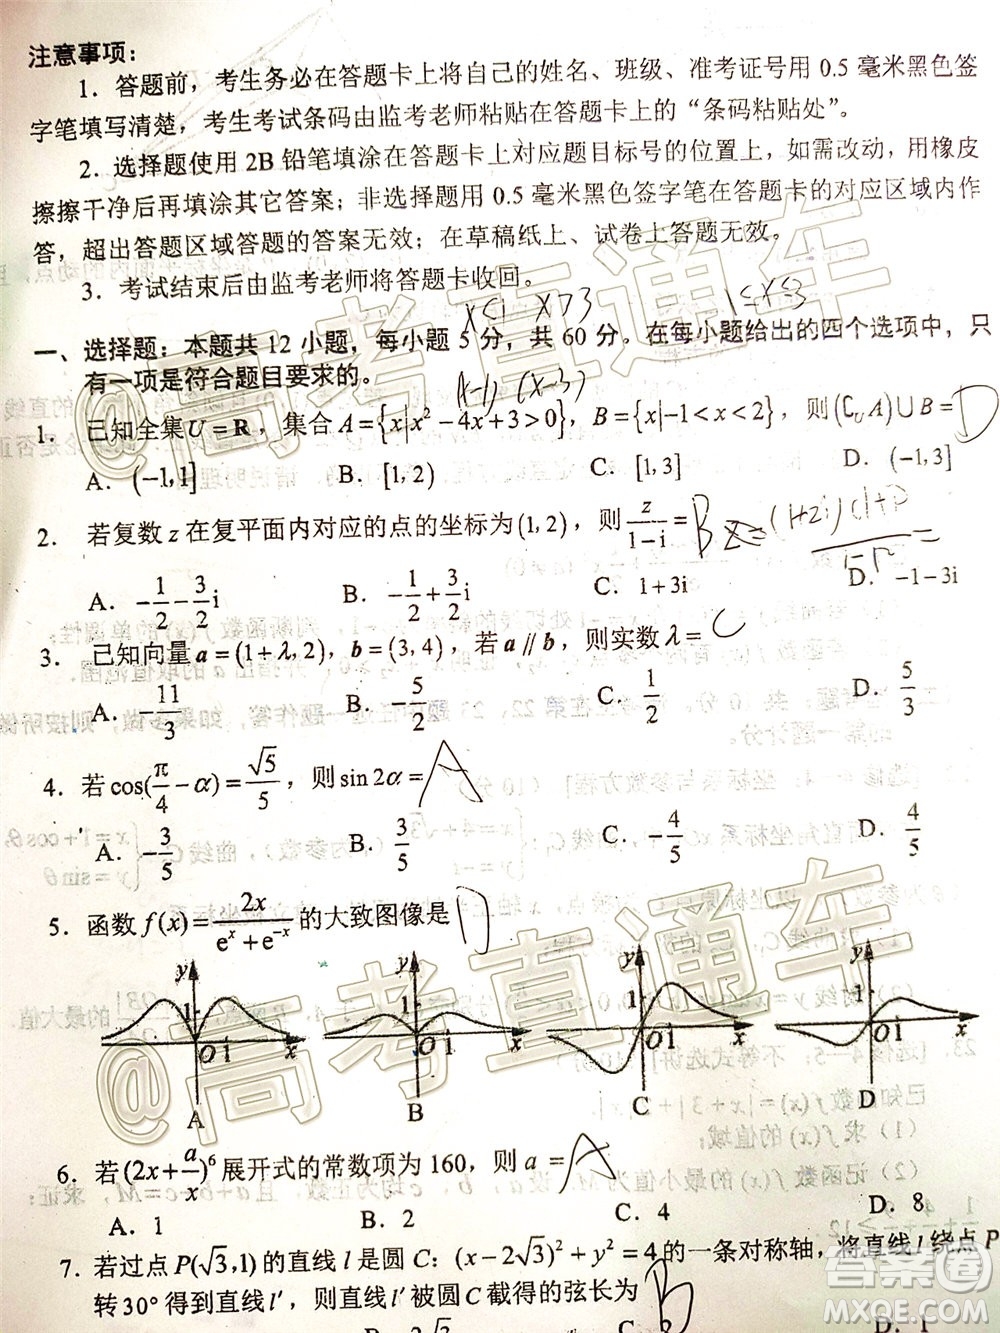 注意事项：
1．答题前，考生务必在答题卡上将自己的姓名、班级、准考证号用 0.5 毫米黑色签
字笔填写清楚，考生考试条码由监考老师粘贴在答题卡上的“条码粘贴处”。
2．选择题使用 2B 铅笔填涂在答题卡上对应题目标号的位置上，如需改动，用橡皮
擦擦干净后再填涂其它答案；非选择题用 0.5 毫米黑色签字笔在答题卡的对应区域内作
答，超出答题区域答题的答案无效；在草稿纸上、试卷上答题无效。
3．考试结束后由监考老师将答题卡收回。
x<1 x>3 1≤x≤3
一、选择题：本题共 12 小题，每小题 5 分，共 60 分。在每小题给出的四个选项中，只
有一项是符合题目要求的。
(x-1) (x-3)
1． 已知全集U=R，集合 A={x|x²-4x+3>0}，B={x|-1<x<2}，则(∁UA)∪B= D
A．(-1,1] B．[1,2) C．[1,3] D．(-1,3]
2． 若复数 z 在复平面内对应的点的坐标为(1,2)，则 z/(1-i) = B
A．-1/2-3/2i B．-1/2+3/2i C．1+3i D．-1-3i
3． 已知向量 a=(1+λ,2)，b=(3,4)，若 a∥b，则实数 λ= C
A．-11/3 B．-5/2 C．1/2 D．5/3
4．若 cos(π/4-α)=√5/5，则 sin2α= A
A．-3/5 B．3/5 C．-4/5 D．4/5
5．函数 f(x)=2x/(eˣ+e⁻ˣ)的大致图像是 D
y 1 O 1 x y 1 O 1 x y 1 O 1 x y 1 O 1 x
A B C D
6．若 (2x+a/x)⁶ 展开式的常数项为 160，则 a = A
A．1 B．2 C．4 D．8
7．若过点 P(√3,1) 的直线 l 是圆 C：(x-2√3)²+y²=4 的一条对称轴，将直线 l 绕点 P
转 30° 得到直线 l′，则直线 l′ 被圆 C 截得的弦长为 B
B．2√3 D．1
@高考直通车
@高考直通车
答案圈
MXQE.COM